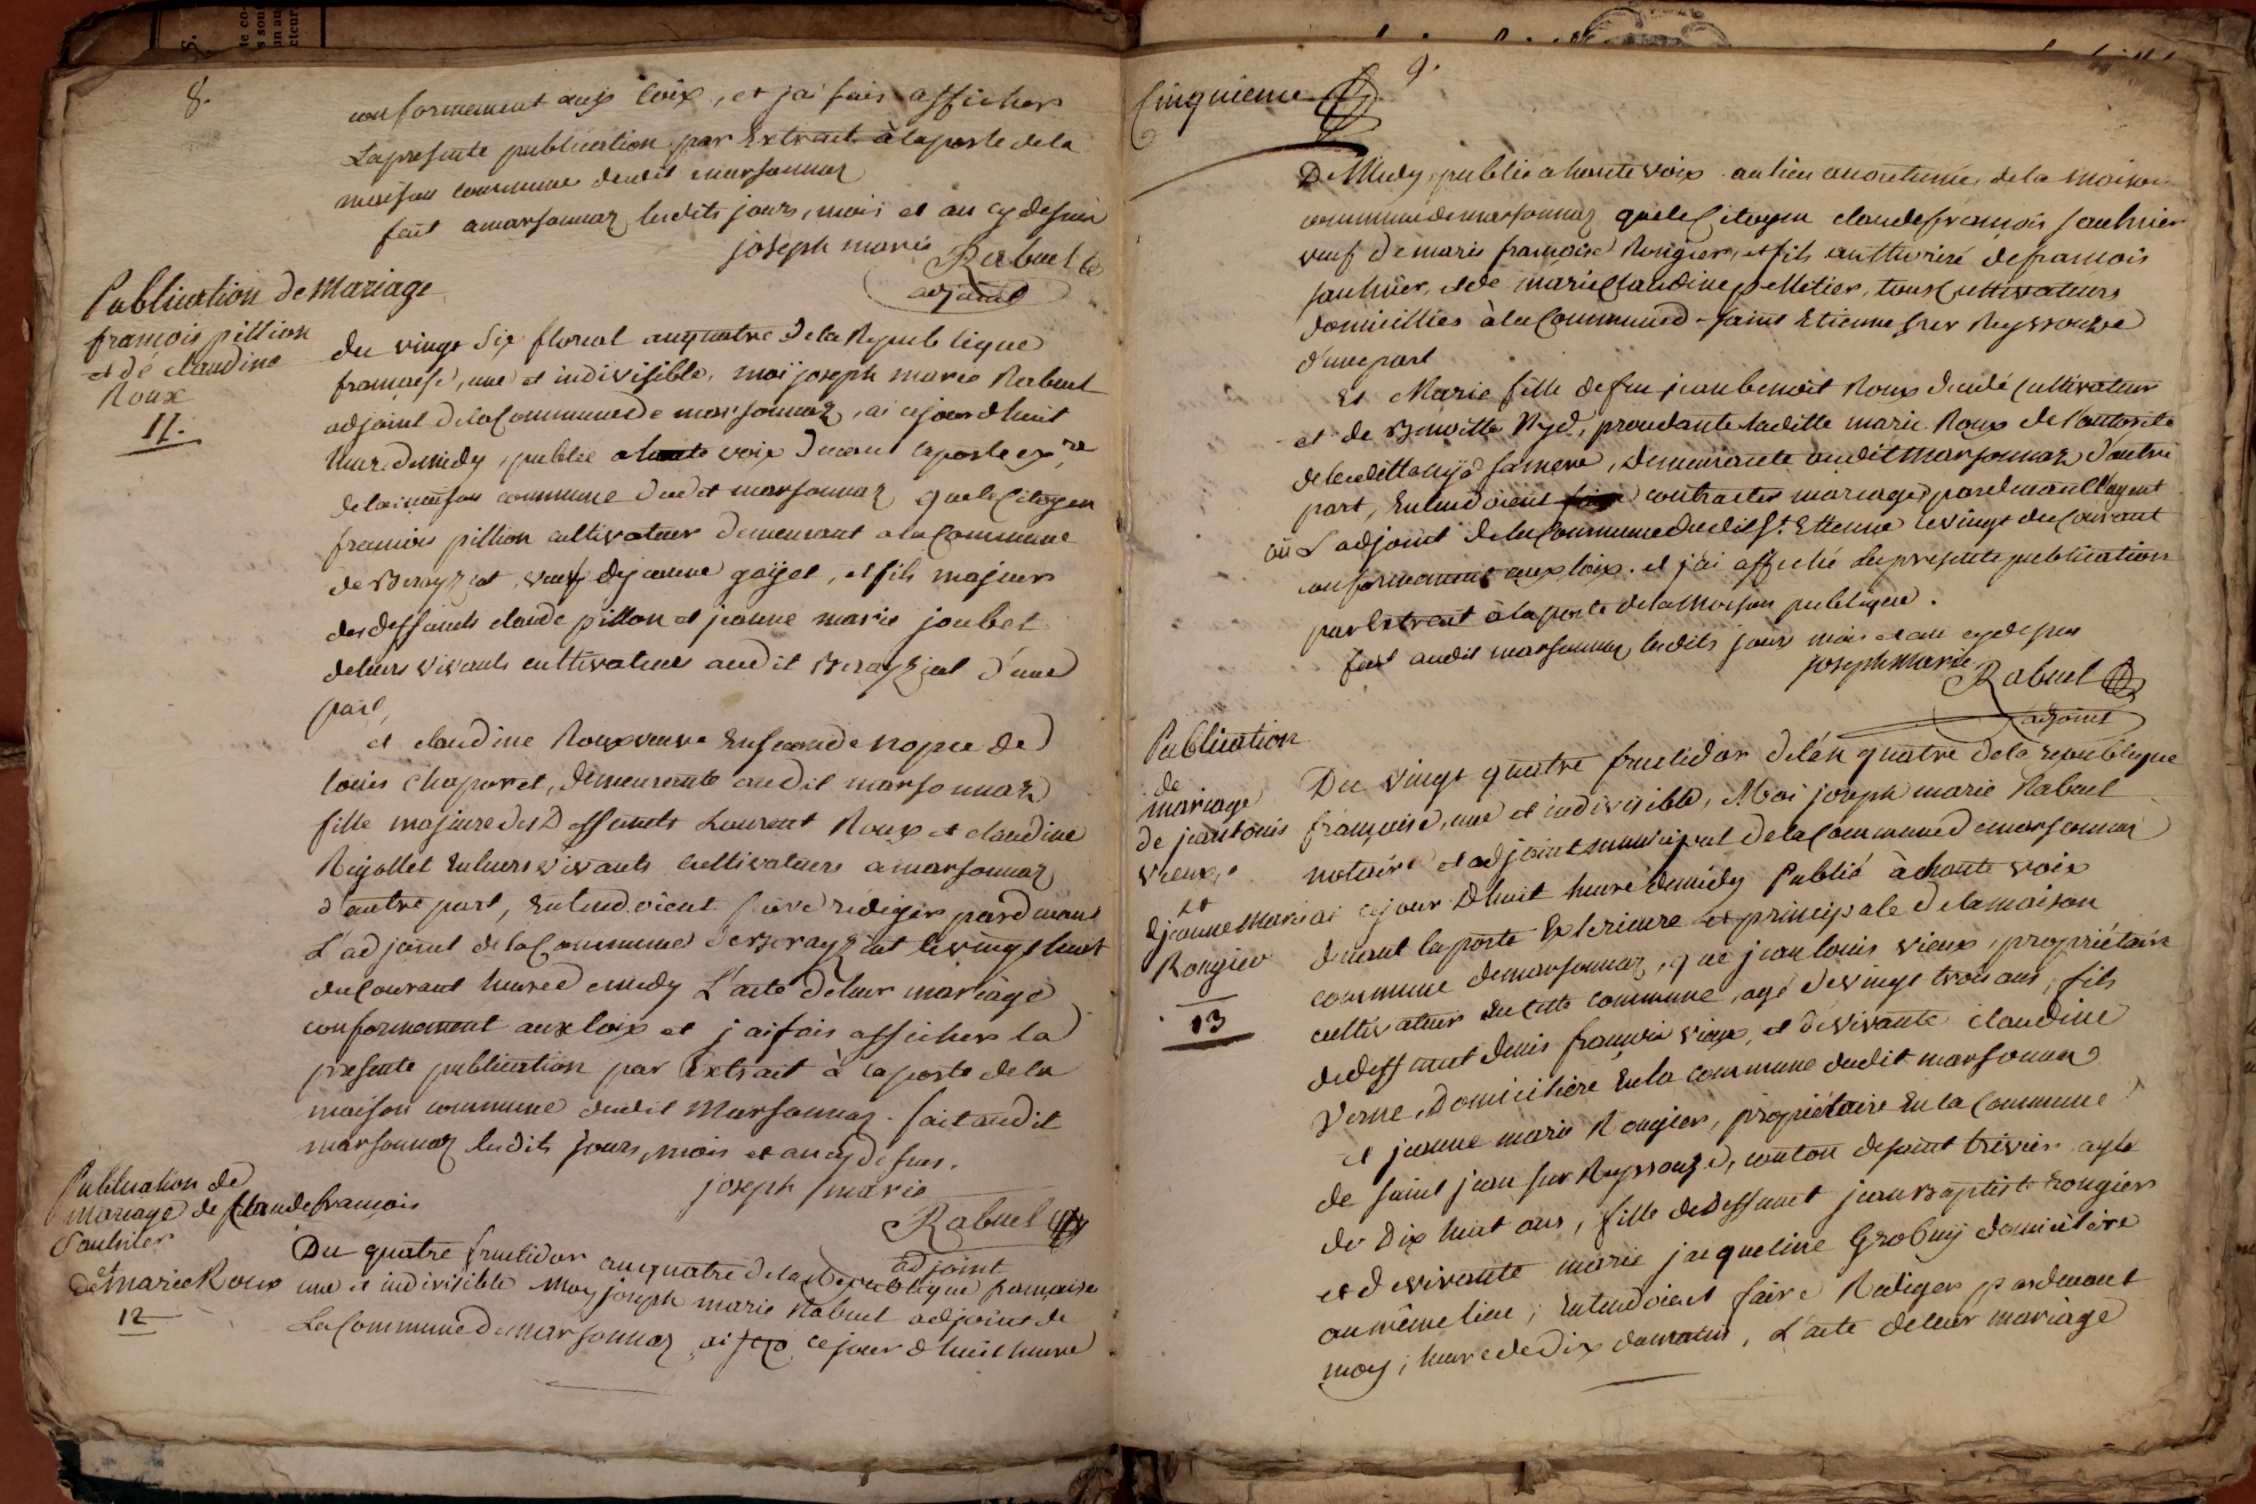 8.
conformement aux loix, et j'ai fais afficher
La presente publication par Extrait à la porte de la
maison commune dudit marsonnaz
fait a marsonnaz lesdits jours, mois et an cy dessus
joseph marie
Rabuel
adjoint
Publication de Mariage
françois pillion
et dé claudine
Roux
11.
du vingt six floreal an quatre de la Republique
françaese, une et indivisible, moi joseph marie Rabuel
adjoint de la Commune de marsonnaz, ai cejourdhuit
heure de midy, publié a haute voix devant la porte ex.re
de la maison commune dudit marsonnaz que le Citoyen
francois pillion cultivateur demeurant a la Commune
de Berayziat, veuf de jeanne goÿet, et fils majeur
des deffunts claude pillon et jeanne marie joubet
de leurs vivants cultivateurs audit Berayziat d'une
part,
et claudine Roux veuve En seconde nopce de
louis Chaparet, demeurante audit marsonnaz
fille majeure des Deffunts Laurent Roux et claudine
Reÿollet En leurs vivants cultivateurs a marsonnaz
d'autre part, Entendoient faire rédiger pardevant
L'adjoint de la Commune de Berayziat le vingt huit
du Courant heure de midy L'acte de leur mariage
conformement aux loix et j'ai fais afficher la
presente publication par Extrait à la porte de la
maison commune dudit Marsonnaz. fait audit
marsonnaz lesdits jours, mois et an cy dessus.
joseph marie
Rabuel
adjoint
Publication de
mariage de Claude françois
Saulnier
et
de marie Roux
12
Du quatre fructidor an quatre de la Republique française
une et indivisible Moy joseph marie Rabuel adjoint de
La Commune de marsonnaz, ai ce jour d'huit heure
9.
Cinquieme
De Midy, publié a haute voix au lieu accoutumé de la Maison
commune de marsonnaz que le Citoyen claude françois Saulnier
veuf de marie françoise Rongier, et fils authorizé de françois
Saulnier, et de marie Claudine pelletier, tous Cultivateurs
domicilliés à la Commune de Saint Etienne sur Reyssouze
d'une part
Et Marie fille de feu jean benoit Roux decedé Cultivateur
et de Benoitte Nyd, procedante laditte marie Roux de l'autorité
de laditte nyd sa mere, demeurante audit Marsonnaz d'autre
part, Entendoient contracter mariage pardevant L'agent
où L'adjoint de la Commune dudit St. Etienne le vingt du Courant
conformement aux loix. et j'ai affiché la presente publication
par Extrait à la porte de la Maison publique.
fait audit marsonnaz lesdits jours mois et an cy dessus
joseph Marie
Rabuel
adjoint
Publication
de
mariage
de jean louis
Vieux,
et
de jeanne Marie
Rongier
13
Du vingt quatre fructidor de l'an quatre de la republique
française, une et indivisible, Moi joseph marie Rabuel
notaire et adjoint municipal de la Commune de marsonnaz
ai ce jour Dhuit heure de midy Publié à haute voix
devant la porte Exterieure et principale de la maison
commune de marsonnaz, que jean louis vieux, propriétaire
cultivateur En cette commune, agé de vingt trois ans, fils
de deffunt denis françois vieux, et de vivante claudine
Verne, Domiciliére En la commune dudit marsonnaz
et jeanne marie Rongier, propriétaire En la Commune
de Saint jean sur Reyssouze, canton de saint trivier, agée
de Dix huit ans, fille de Deffunct jean Baptiste Rongier
et de vivante marie jacqueline Grobuÿ domiciliére
au même lieu; Entendoient faire Rediger pardevant
moy; heure de Dix du matin, L'acte de leur mariage